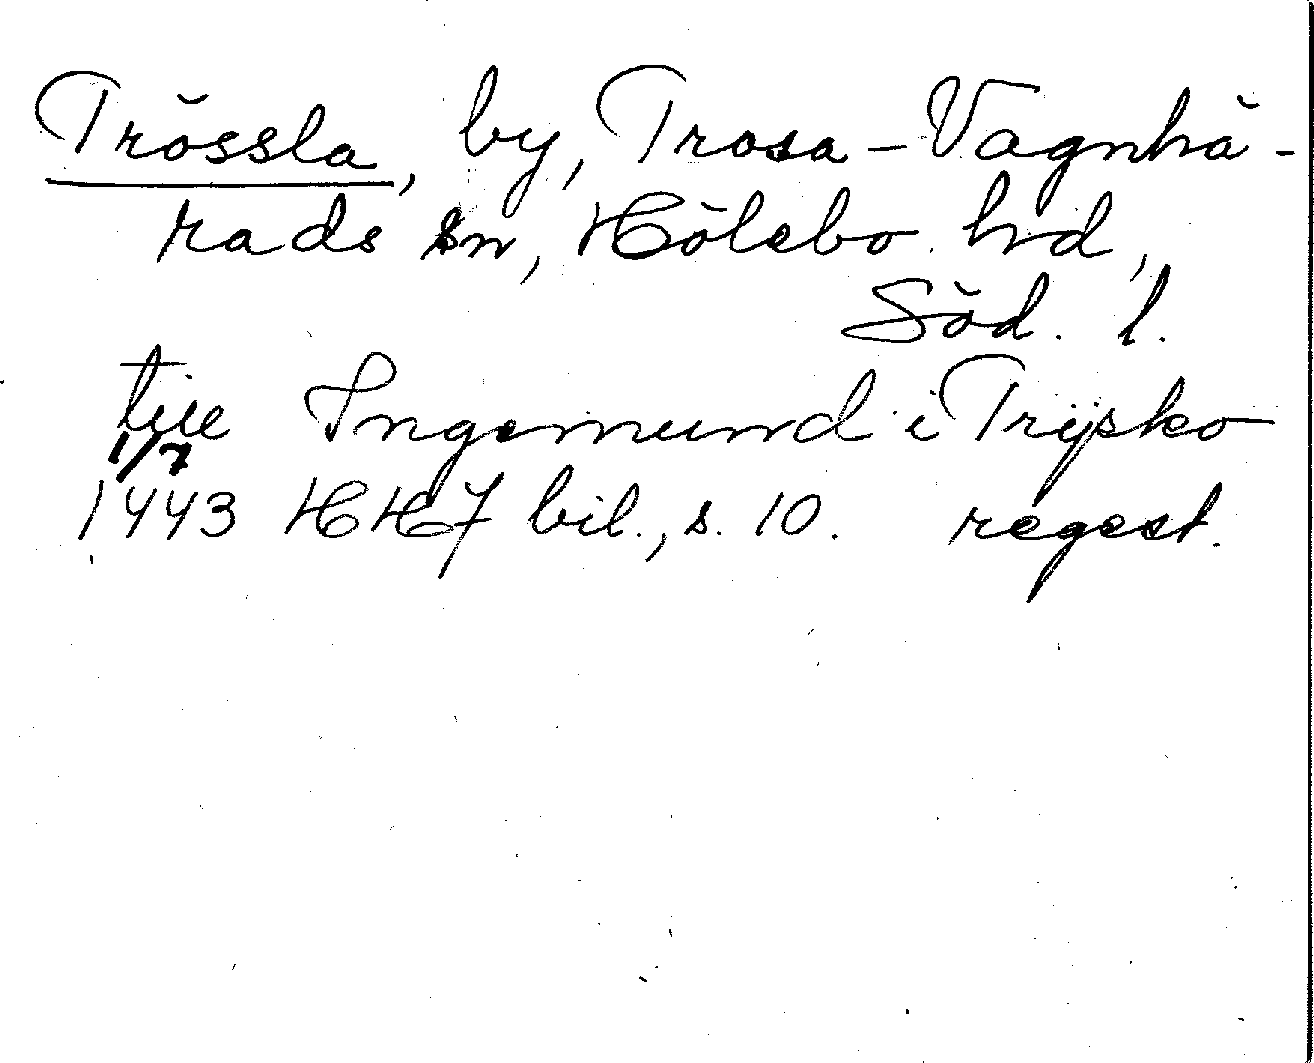 Trössla, by, Trosa-Vagnhä-
rads sn, Hölebo hd,
Söd. l.
till Ingemund i Trijsko
1/7
1443 HH7 bil., s. 10. regest.